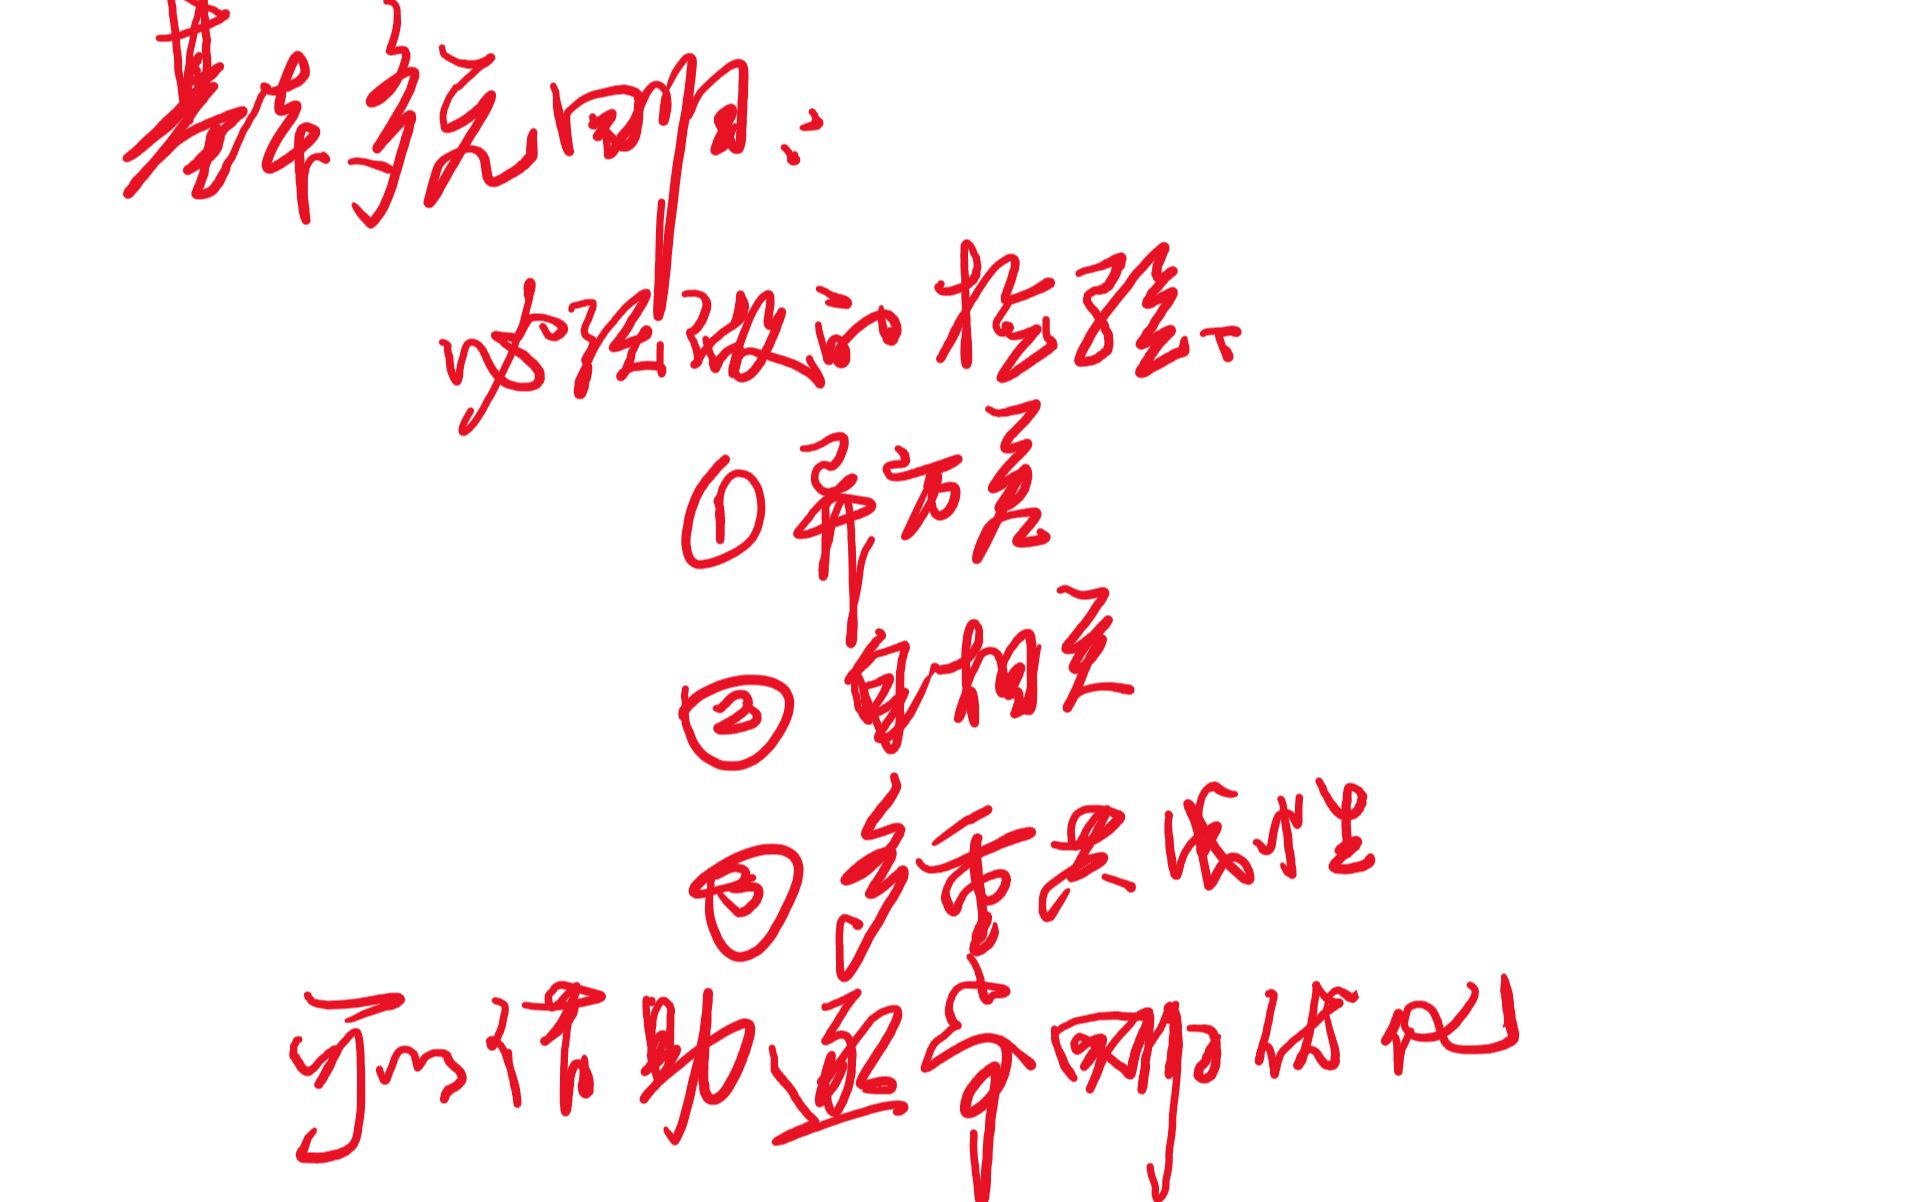 基本多元回归:
必须做的检验、
① 异方差
② 自相关
③ 多重共线性
可以借助逐步回归优化